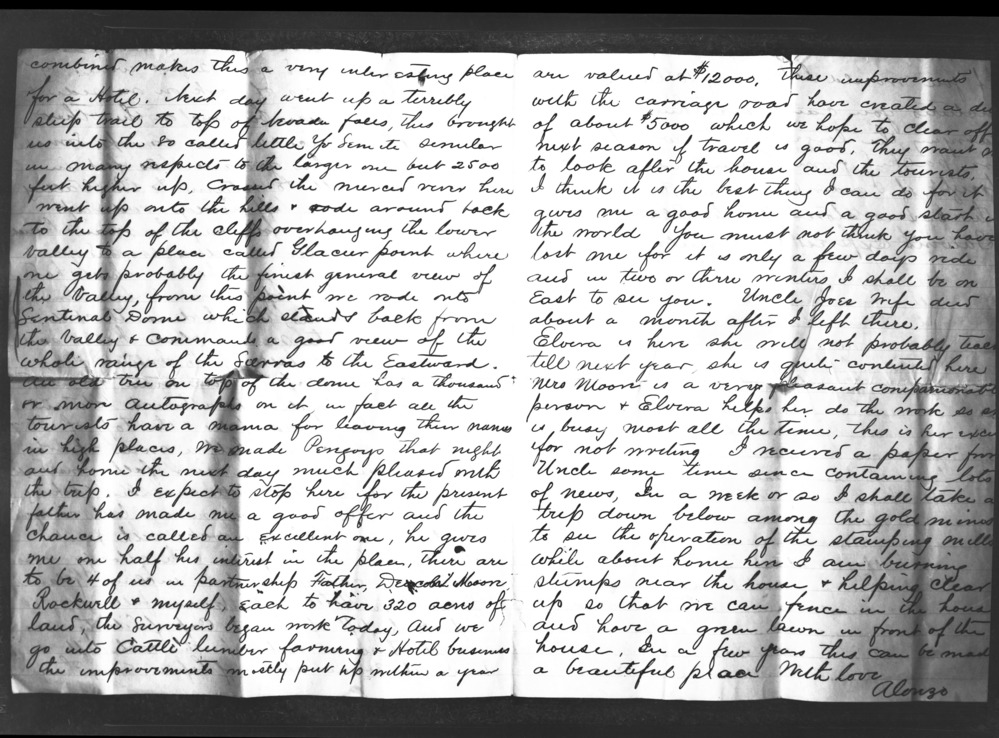 combined makes this a very interesting place
for a Hotel. Next day went up a terribly
steep trail to top of Nevada falls, this brought
us into the so called little Yo Semite similar
in many respects to the larger one but 2500
feet higher up, crossed the merced river here
went up onto the hills & rode around back
to the top of the cliffs overhanging the lower
valley to a place called Glacier point where
one gets probably the finest general view of
the Valley, from this point we rode onto
Sentinal Dome which stands back from
the Valley & commands a good view of the
whole range of the Sierras to the Eastward.
An old tree on top of the dome has a thousand
or more autographs on it in fact all the
tourists have a mama for leaving their names
in high places, We made Peregoys that night
and home the next day much pleased with
the trip. I expect to stop here for the present
father has made me a good offer and the
chance is called an excellent one, he gives
me one half his interest in the place, there are
to be 4 of us in partnership Father, Moore
Rockwell & myself, each to have 320 acres of
land, the surveyors began work today, and we
go into Cattle lumber farming & Hotel business
the improvements mostly put up within a year
are valued at $12000, these improvements
with the carriage road have created a
of about $5000 which we hope to clear off
next season if travel is good, they want
to look after the house and the tourists,
I think it is the best thing I can do for it
gives me a good home and a good start
the world You must not think you have
lost me for it is only a few days ride
and in two or three winters I shall be on
East to see you. Uncle Joes Wife died
about a month after I left there.
Elvira is here she will not probably teach
till next year, she is quite contented here
Mrs Moore is a very pleasant
person & Elvira helps her do the work so
is busy most all the time, this is her
for not writing I received a paper from
Uncle some time since containing lots
of news, In a week or so I shall take a
trip down below among the gold mines
to see the operation of the stamping mills
While about home here I am burning
stumps near the house & helping clear
up so that we can fence in the house
and have a green lawn in front of the
house, In a few years this can be made
a beautiful place With love
Alonzo